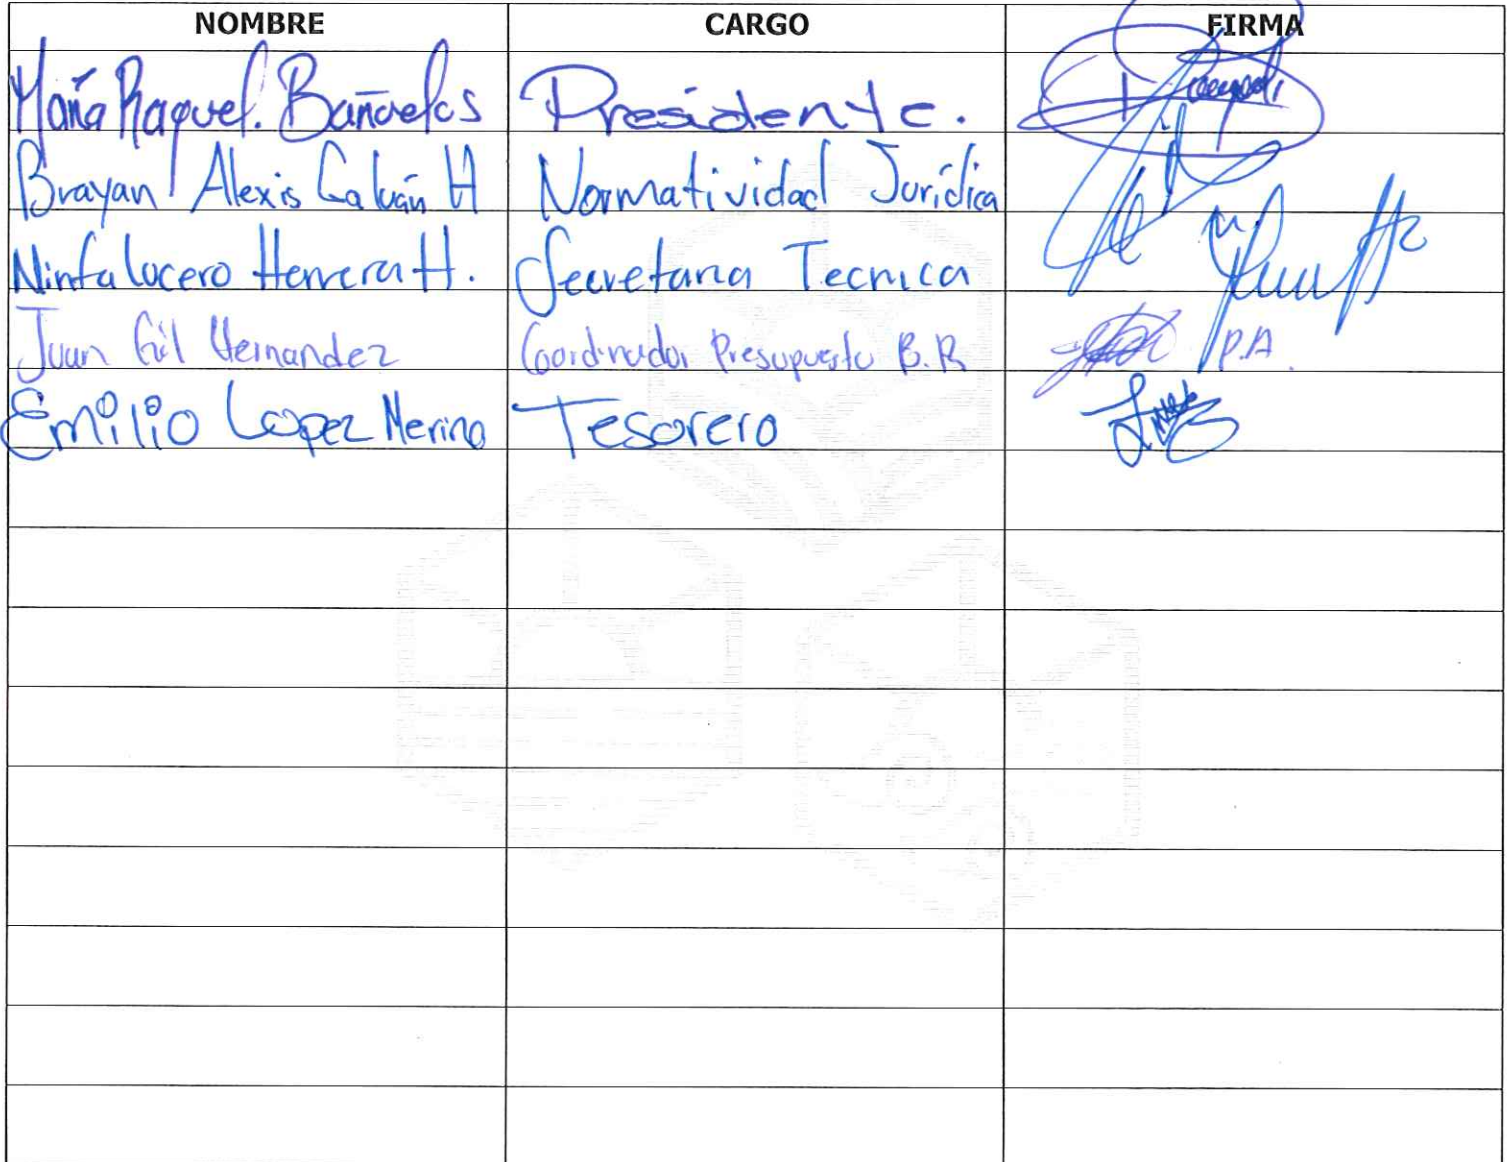 NOMBRE CARGO FIRMA
María Raquel. Bañuelos Presidente.
Brayan Alexis Galván H Normatividad Jurídica
Ninfa Lucero Herrera H. Secretaria Tecnica
Juan Gil Hernandez Coordinador Presupuesto B.R P.A.
Emilio Lopez Merino Tesorero